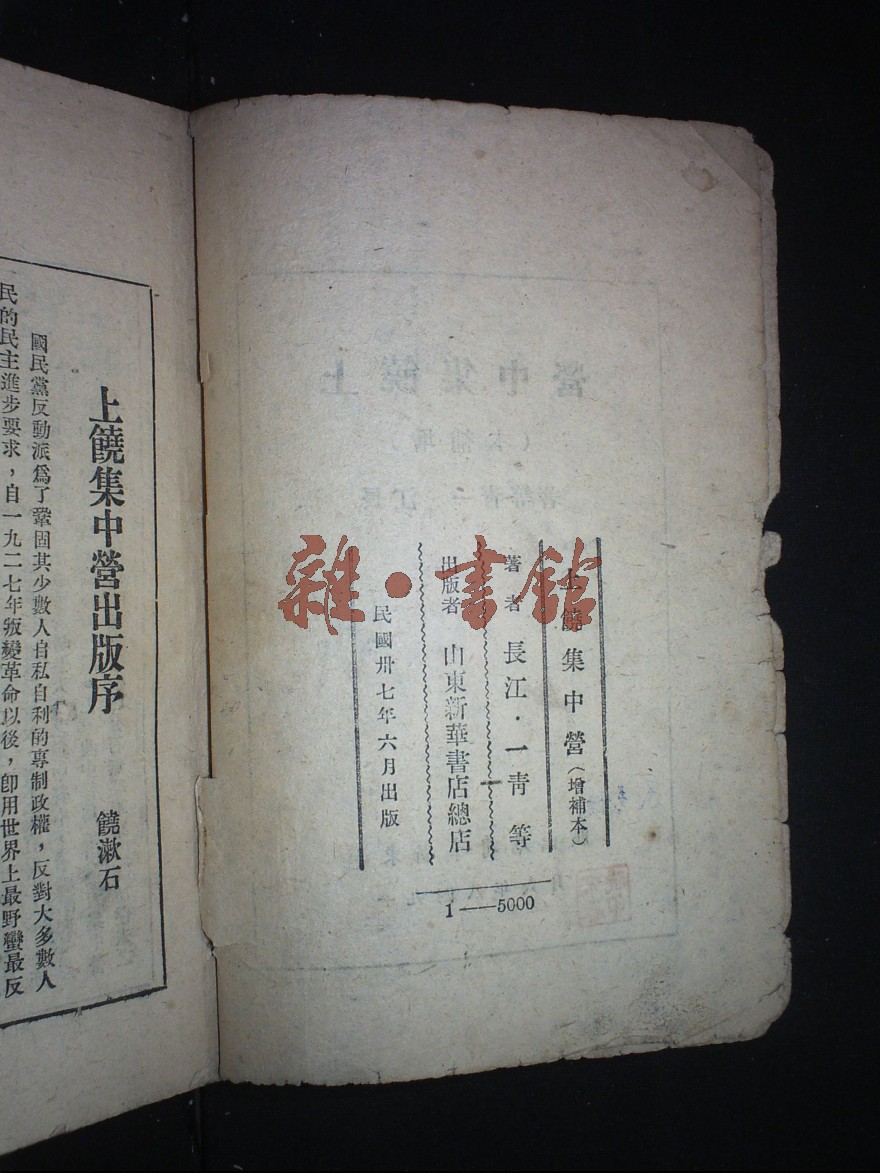 上饒集中營(增補本)
著者 長江·一青等
出版者 山東新華書店總店
民國卅七年六月出版
1——5000
雜·書館
上饒集中營出版序
饒漱石
國民黨反動派爲了鞏固其少數人自私自利的專制政權，反對大多數人
民的民主進步要求，自一九二七年叛變革命以後，卽用世界上最野蠻最反